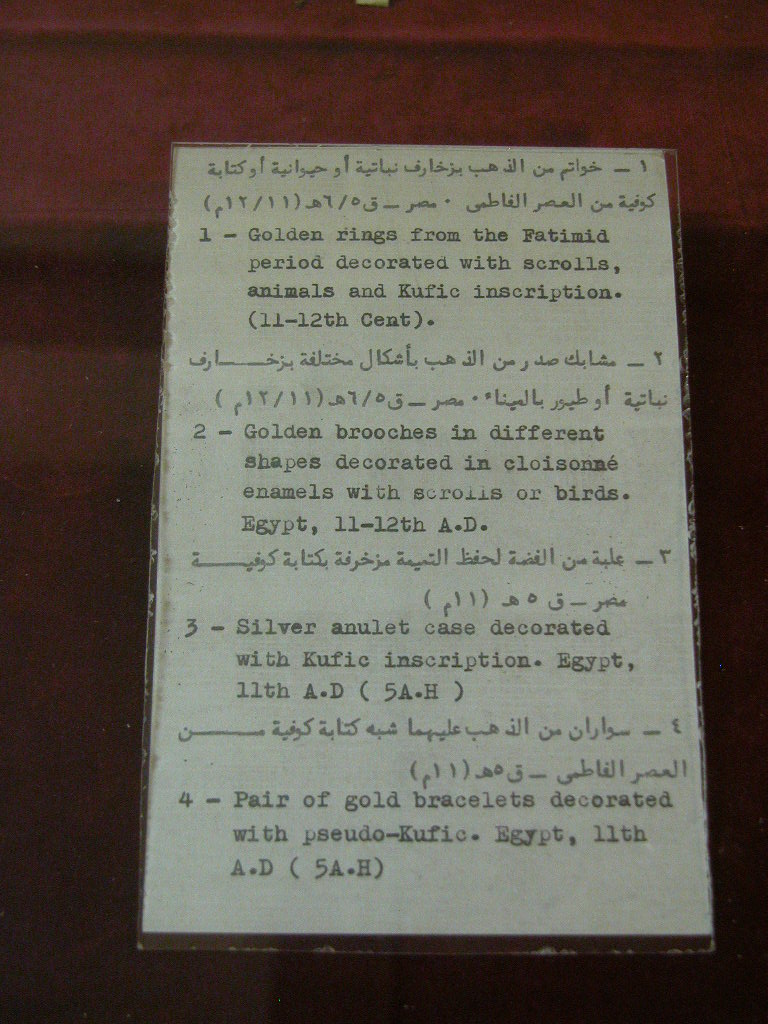 ١ — خواتم من الذهب بزخارف نباتية أو حيوانية أو كتابة
كوفية من العصر الفاطمى ٠ مصر — ق٦/٥هـ (١٢/١١م)
1 - Golden rings from the Fatimid
period decorated with scrolls,
animals and Kufic inscription.
(11-12th Cent).
٢ — مشابك صدر من الذهب بأشكال مختلفة بزخـــارف
نباتية أو طيور بالميناء ٠ مصر — ق٦/٥هـ (١٢/١١م )
2 - Golden brooches in different
shapes decorated in cloisonné
enamels with scrolls or birds.
Egypt, 11-12th A.D.
٣ — علبة من الفضة لحفظ التميمة مزخرفة بكتابة كوفيـــة
مصر — ق ٥ هـ (١١م )
3 - Silver anulet case decorated
with Kufic inscription. Egypt,
11th A.D ( 5A.H )
٤ — سواران من الذهب عليهما شبه كتابة كوفية مـــن
العصر الفاطمى — ق٥هـ (١١م)
4 - Pair of gold bracelets decorated
with pseudo-Kufic. Egypt, 11th
A.D ( 5A.H)